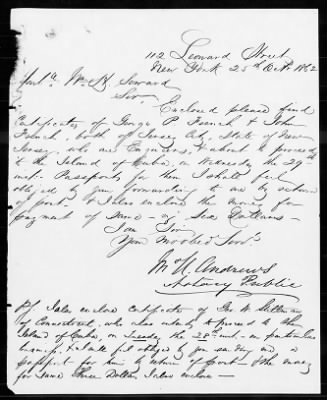 112 Leonard Street
New York 25th Oct. 1862
Wm H. Seward
Sir,
Enclosed please find
Certificates of George P. French & John
French, both of Jersey City, State of New
Jersey, who are Engineers, & about to proceed
to the Island of Cuba, on Wednesday the 29th
inst. Passports for them I shall feel
obliged by your forwarding to me by return
of post. & I also enclose the money for
payment of same - viz Six Dollars -
I am Sir
Your Most Obed. Servt.
M. N. Andrews
Notary Public
P.S. I also enclose certificate of Geo. W.
of Connecticut, who also intends to proceed to the
Island of Cuba, on Tuesday the 28th inst. - in particular
& I shall feel obliged by you sending me a
passport for him by return of post - & the money
for same Three Dollars I also enclose -